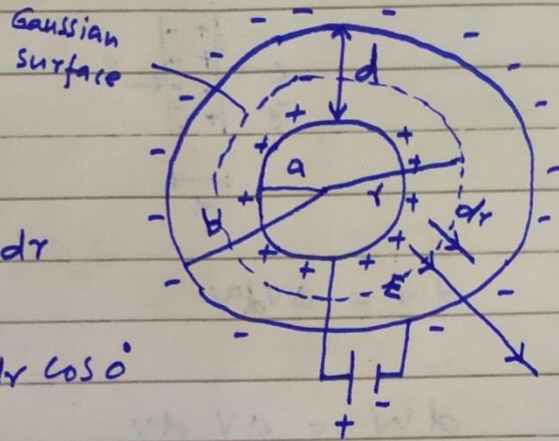 Gaussian
surface
d
a
r
b
dr
dr
E
dr cos 0°
+ -